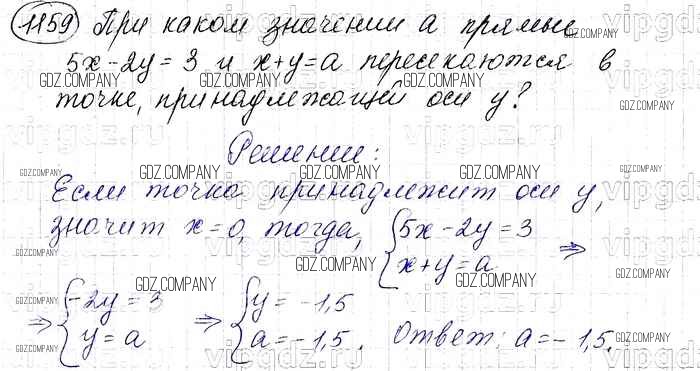 1159 При каком значении а прямые
5x-2y=3 и x+y=a пересекаются в
точке, принадлежащей оси y?
Решение:
Если точка принадлежит оси y,
значит x=0, тогда, {5x-2y=3 ⇒
{x+y=a
⇒ {-2y=3 ⇒ {y=-1,5
{y=a {a=-1,5. Ответ: a=-1,5.
GDZ.COMPANY
vipgdz.ru